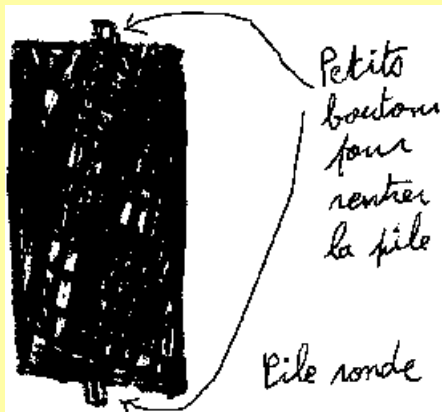 Petits
boutons
pour
rentrer
la pile
Pile ronde